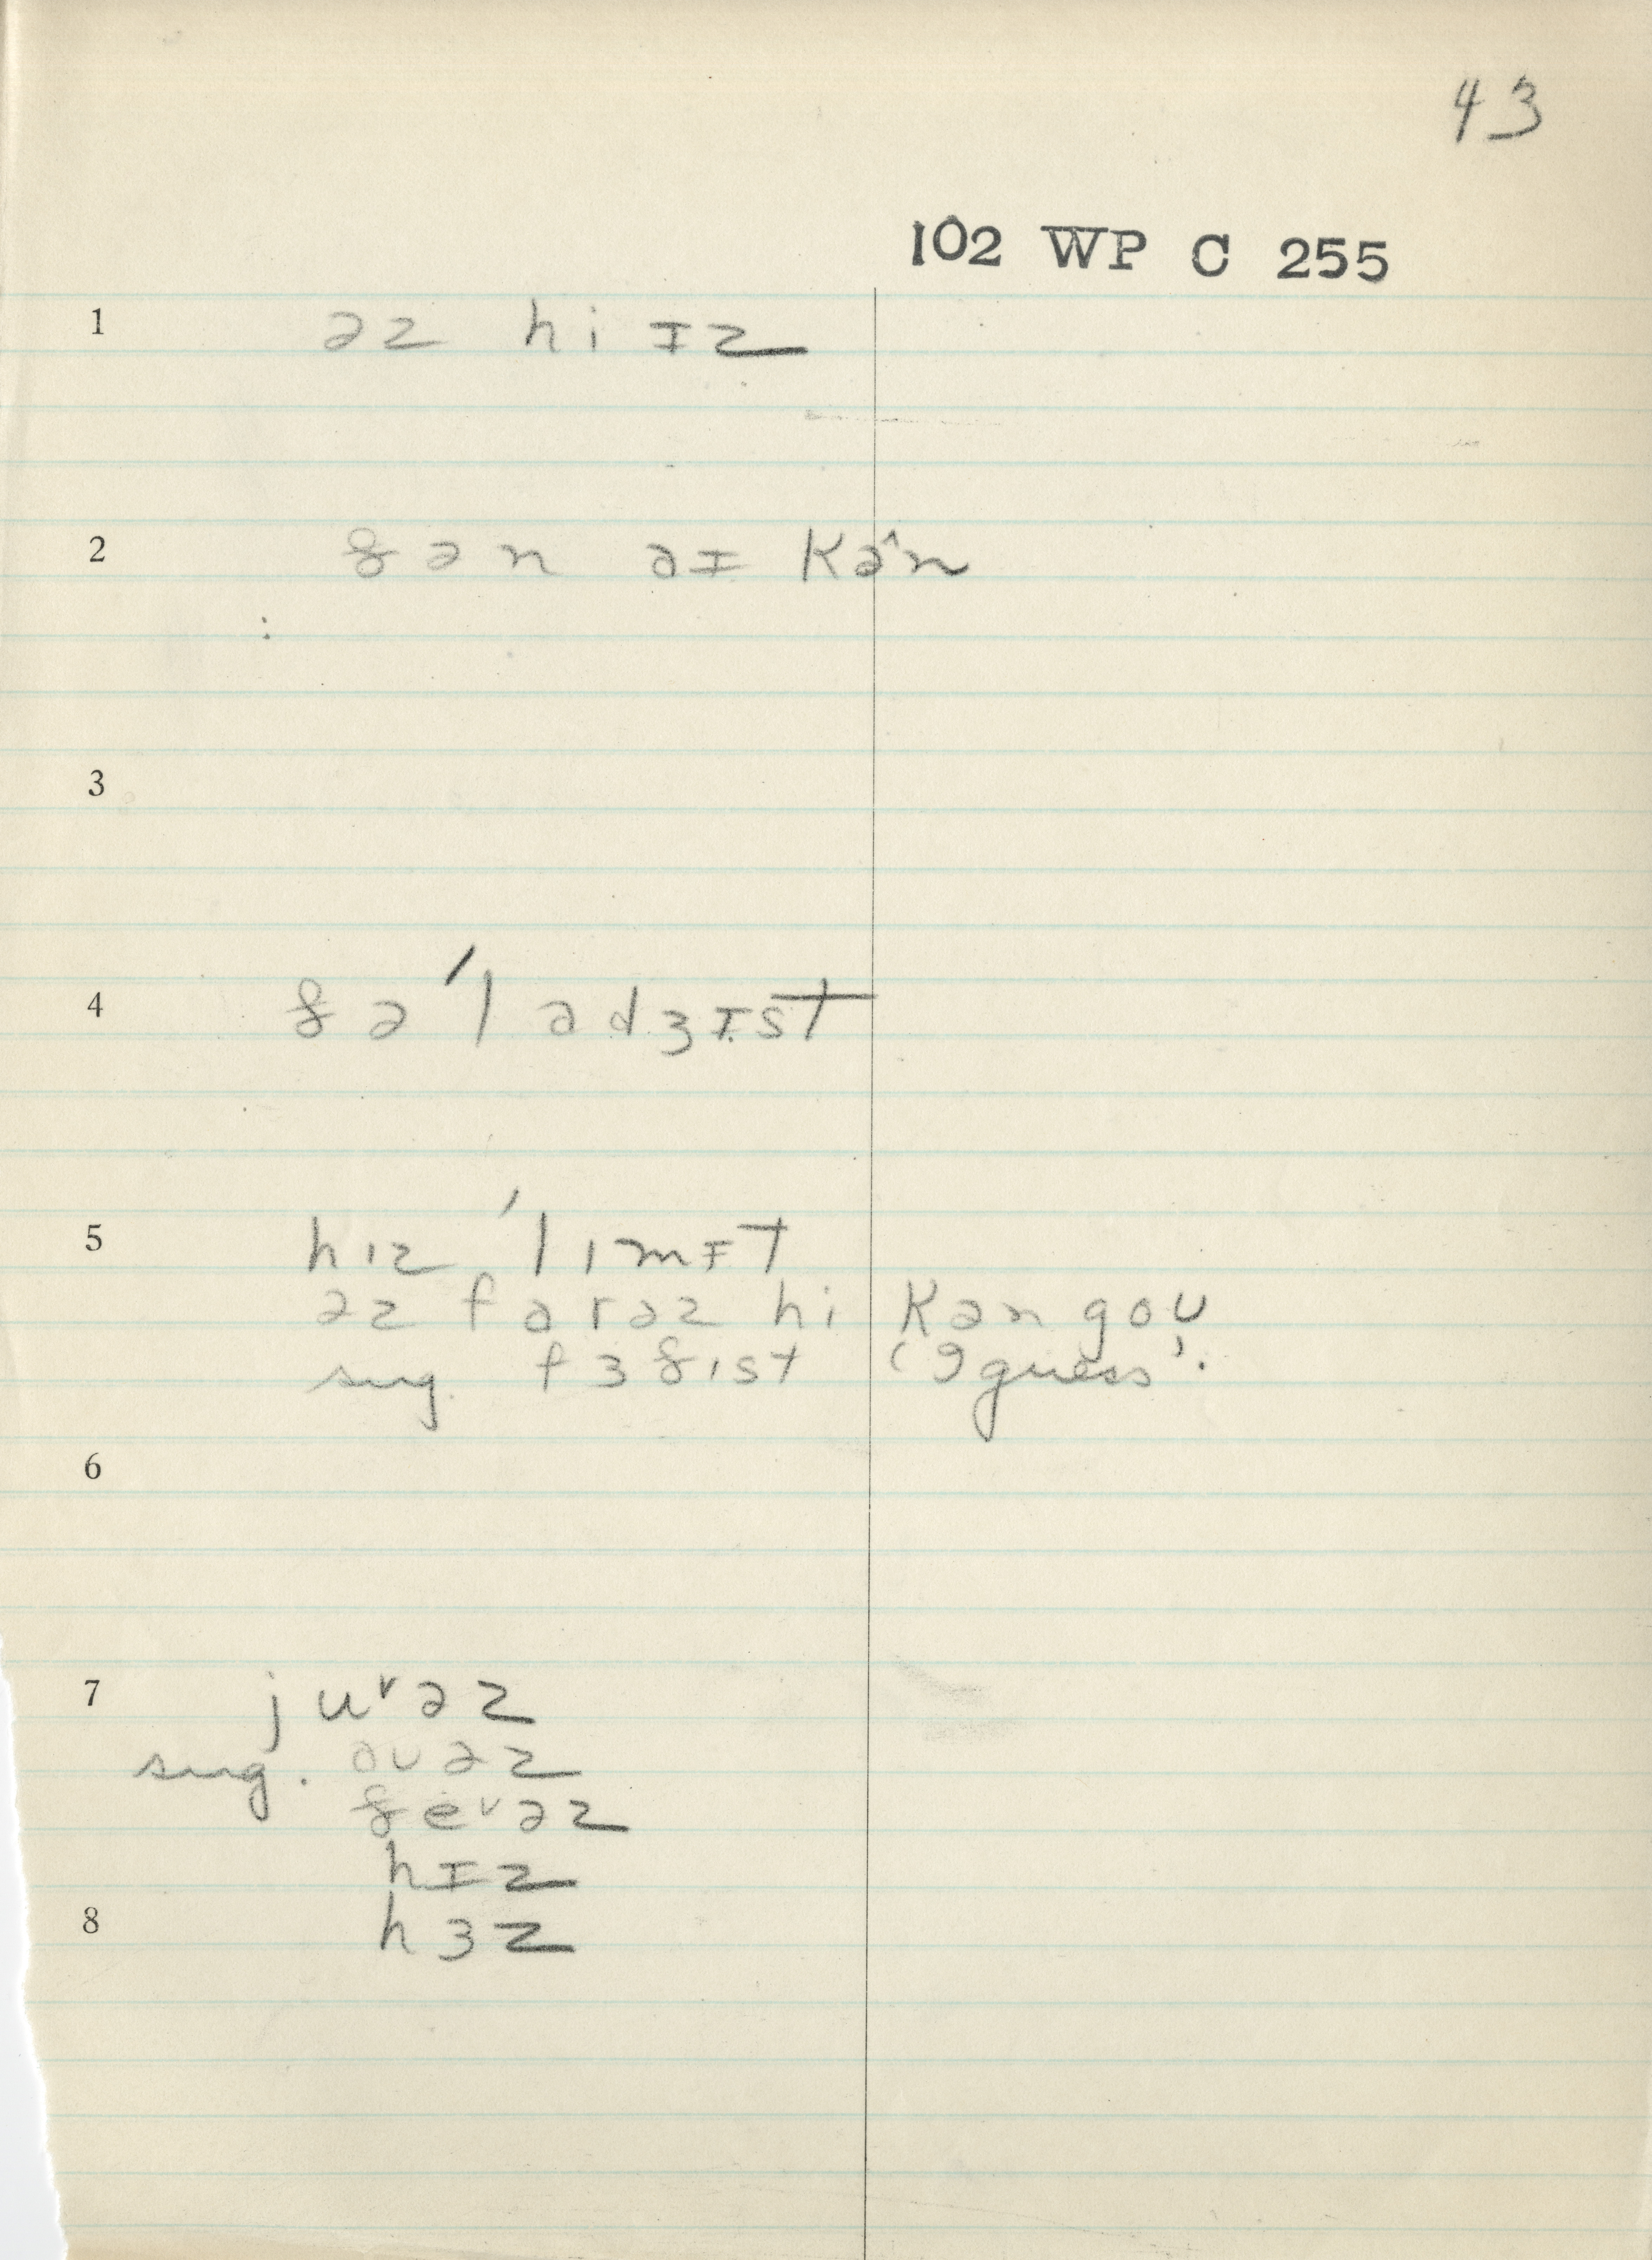 43
102 WP C 255
1 əz hi ɪz
2 ðən aɪ kə^n
3
4 ðə ˈladʒɪst
5 hɪz ˈlɪmɪt
əz farəz hi kən goʊ
sug. fɜðɪst 'I guess'.
6
7 juᵛəz
sug. aʊəz
ðeᵛəz
hɪz
8 hɜz